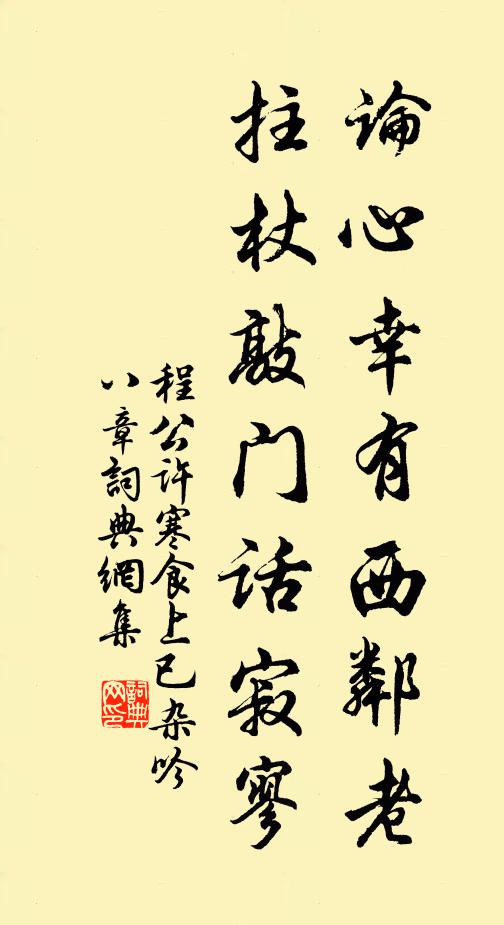 論心幸有西鄰老
拄杖敲門话寂寥
程公许寒食上已杂吟
八章詞典網集
詞典网印